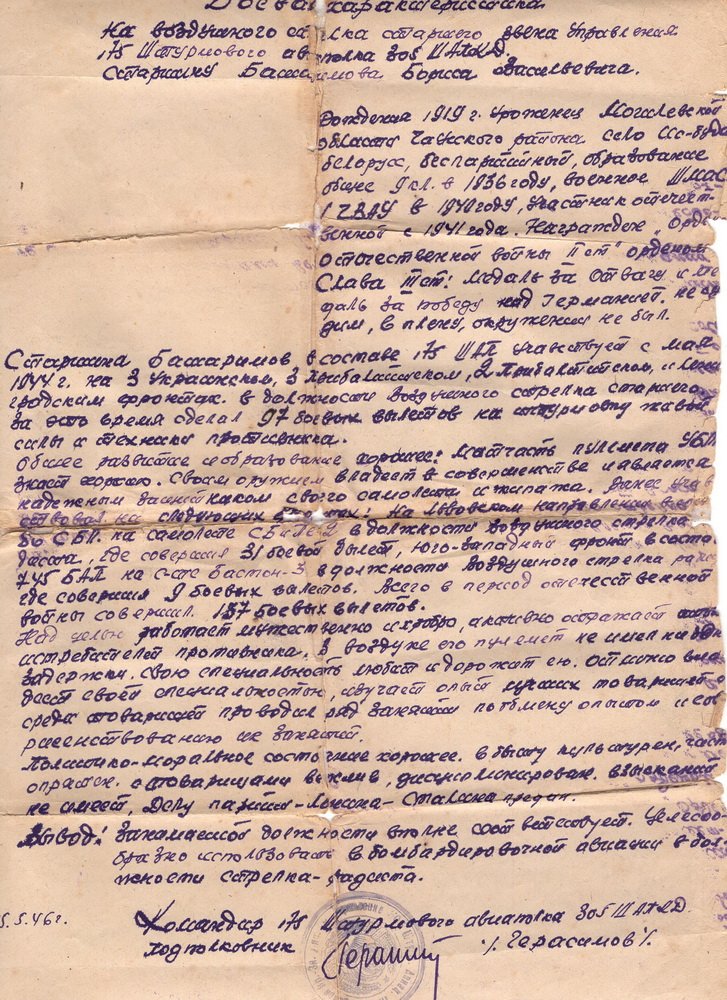 Боевая характеристика
На воздушного стрелка старшего звена Управления
175 Штурмового авиаполка 305 ШАКЛД.
Старшину Башаримова Бориса Васильевича.
Рождения 1919 г. Уроженец Могилевской
области Чаусского района село
белорус, беспартийный, образование
общее 9 кл. в 1936 году, военное ШМАС
в 1940 году, участник отечест-
венной с 1941 года. Награжден „Орде
отечественной войны II ст" орденом
Слава III ст. медаль за Отвагу и ме
даль за победу над Германией. не су
дим, в плену, окружении не был.
Старшина Башаримов в составе 175 ШАП участвует с мая
1944 г. на 3 Украинском, 3 Прибалтийском, 2 Прибалтийском, и Ленин
градским фронтах. в должности воздушного стрелка старшего
За это время сделал 97 боевых вылетов на штурмовку живой
силы и техники противника.
Общее развитие и образование хорошее. Матчасть пулемета УБТ
знает хорошо. Своим оружием владеет в совершенстве и является
надежным защитником своего самолета и экипажа. Ранее уча
ствовал на следующих фронтах: На Львовском направлении
50 СБП на самолете в должности воздушного стрелка
радиста, где совершил 31 боевой вылет, юго-западный фронт в соста
745 БАП на с-те Бостон-3 в должности воздушного стрелка
где совершил 9 боевых вылетов. Всего в период отечественной
войны совершил 137 боевых вылетов.
Над целью работает мужественно и храбро, активно отражает
истребителей противника. В воздухе его пулемет не имел ни одной
задержки. Свою специальность любит и дорожит ею. Отлично вла
деет своей специальностью, изучает опыт лучших товарищей
среди товарищей проводил ряд занятий по обмену опытом и сове
ршенствованию их знаний.
Политико-моральное состояние хорошее. в быту культурен,
опрятен. с товарищами вежлив, дисциплинирован. взысканий
не имеет, Делу партии-Ленина-Сталина предан.
Вывод: Занимаемой должности вполне соответствует. Целесоо-
бразно использовать в бомбардировочной авиации в дол
жности стрелка-радиста.
5.5.46 г.
Командир 175 Штурмового авиаполка 305 ШАКЛД
подполковник /. Герасимов /.